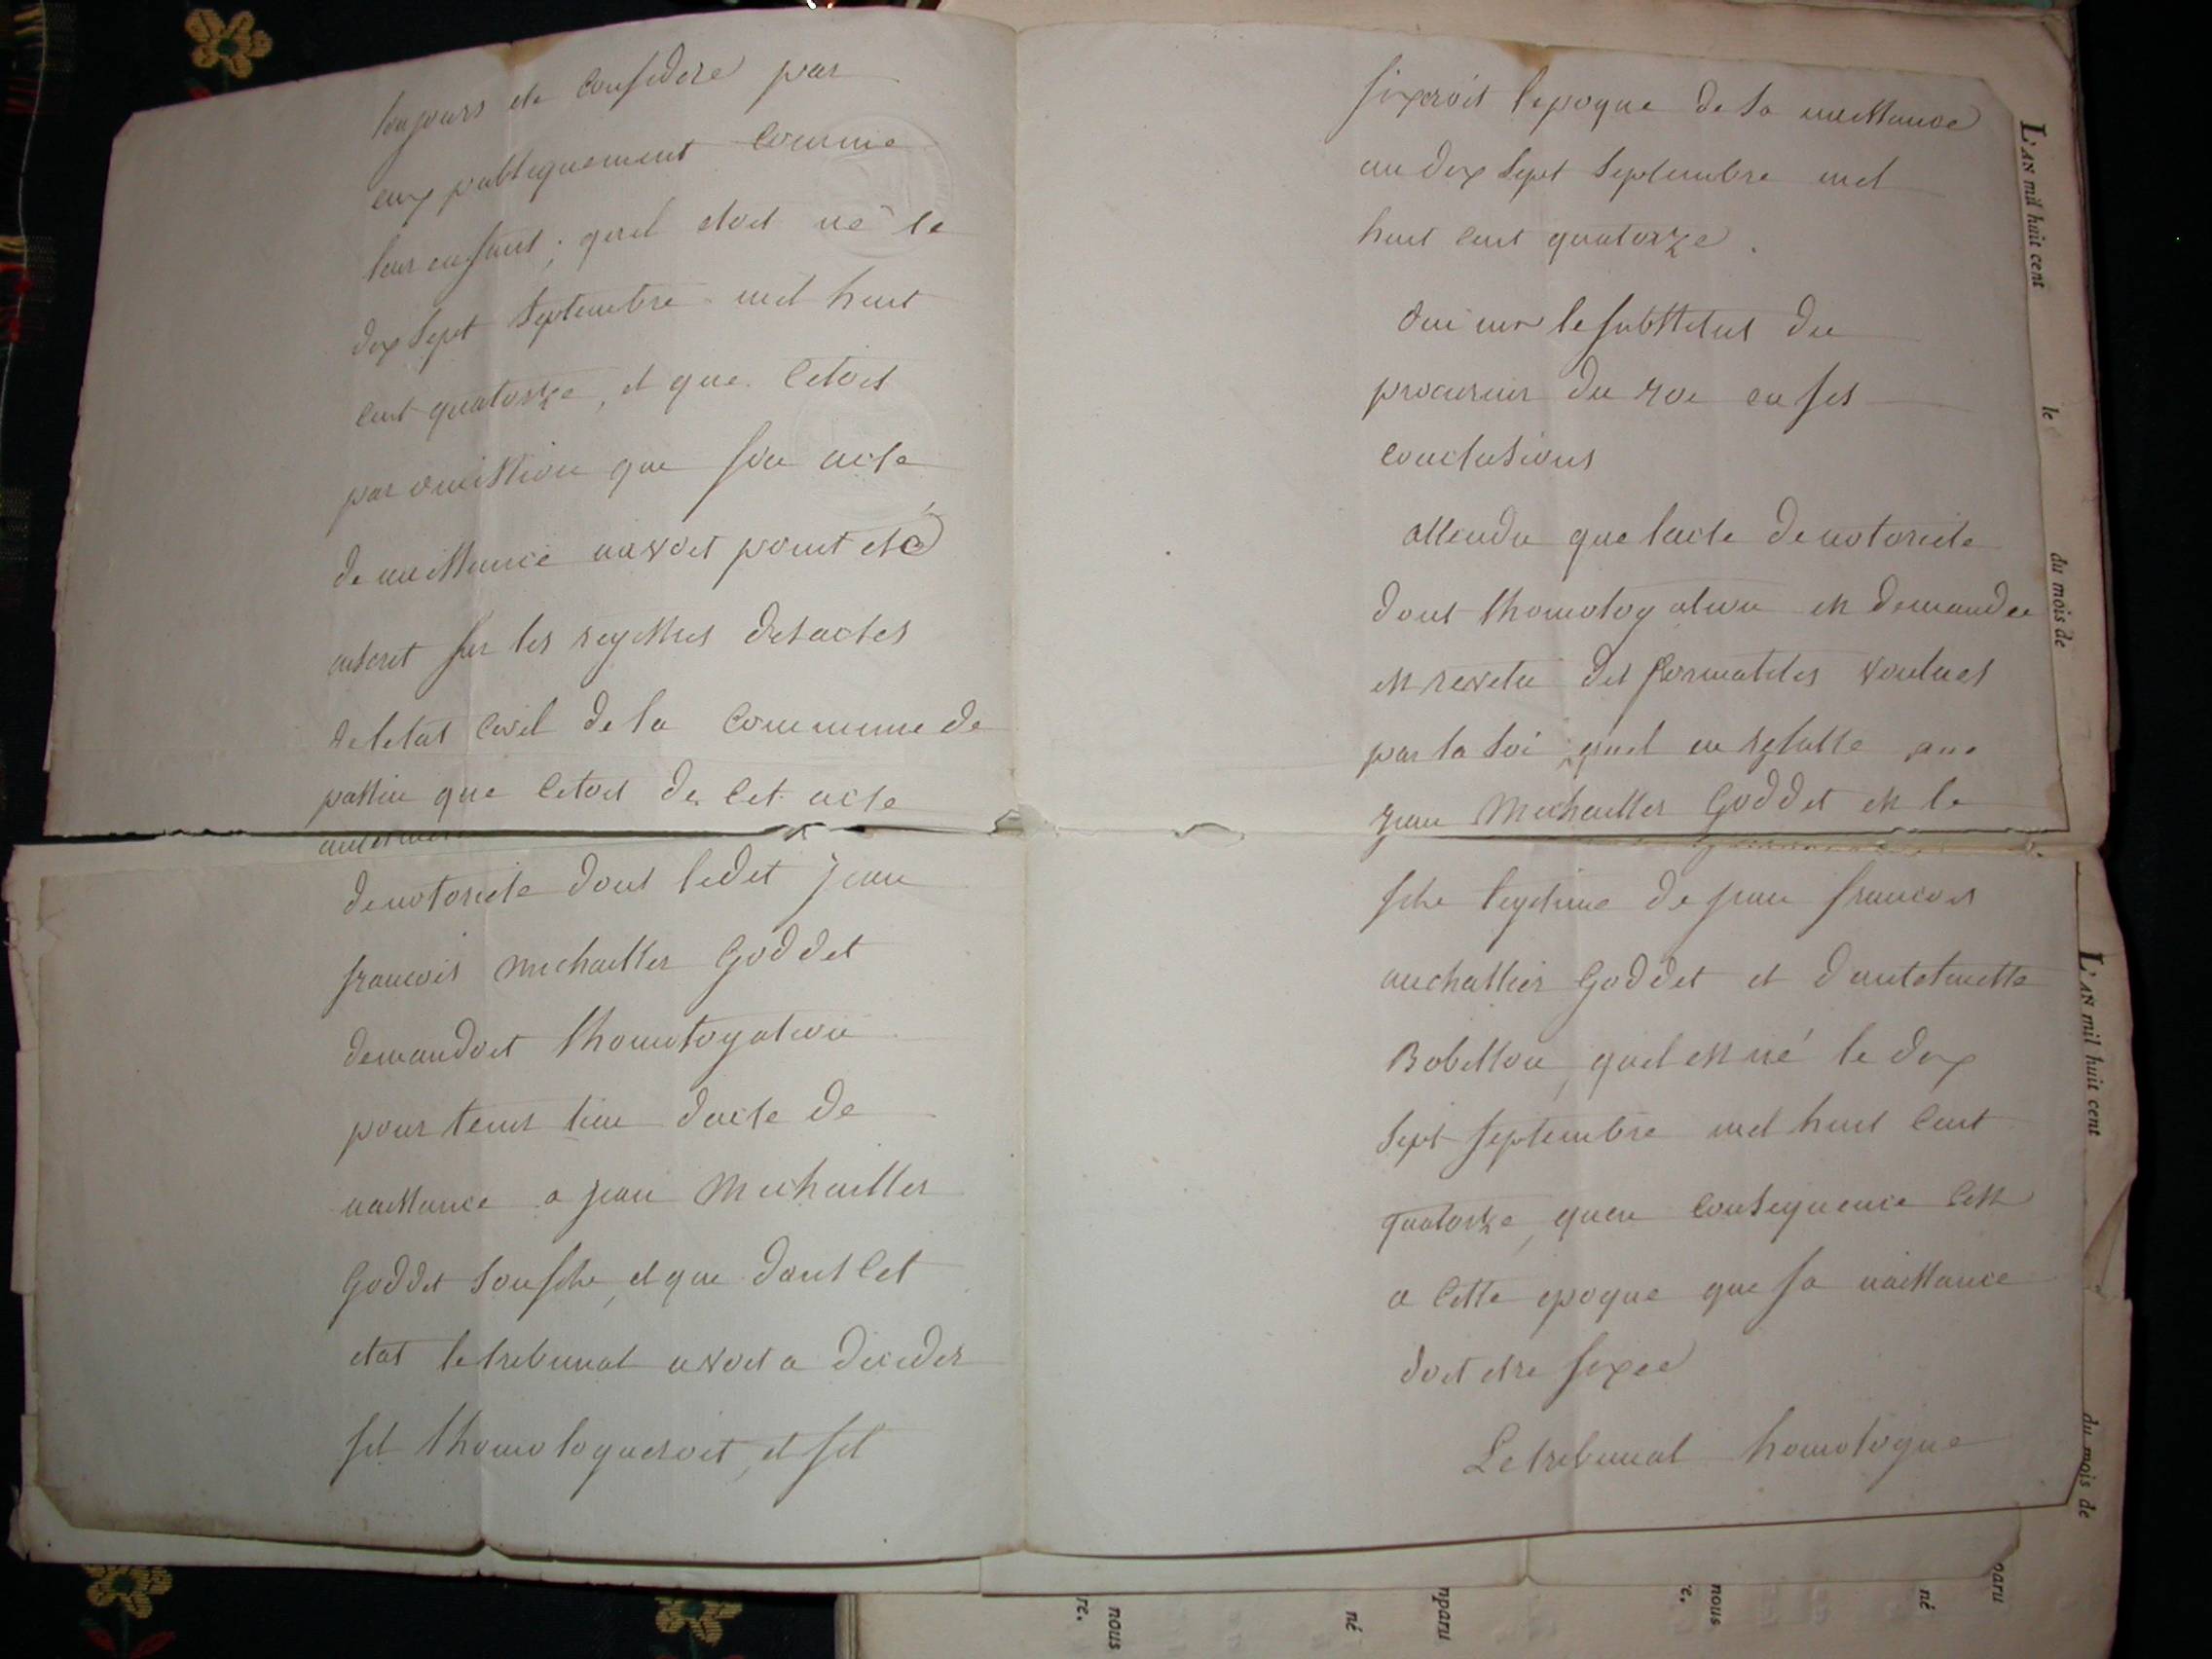 toujours ete consideré par
eux publiquement comme
leur enfant ; quil etoit né le
dix sept septembre mil huit
cent quatorze, et que cetoit
par omission que son acte
de naissance navoit point eté
inscrit sur les registres des actes
de letat civil de la commune de
que cetoit de cet acte
de notoriete dont ledit jean
francois Michallier Goddet
demandoit lhomologation
pour tenir lieu dacte de
naissance a jean Michallier
Goddet son fils, et que dans cet
etat le tribunal avoit a decider
sil lhomologueroit, et sil
fixeroit lepoque de sa naissance
au dix sept septembre mil
huit cent quatorze.
Oui mr le substitut du
procureur du roi en ses
conclusions
attendu que lacte de notoriete
dont lhomologation est demandee
est revetu des formalites voulues
par la loi ; quil en resulte que
jean Michallier Goddet est le
fils legitime de jean francois
michallier Goddet et dantoinette
Bobillon, quil est né le dix
sept septembre mil huit cent
quatorze, quen consequence cest
a cette epoque que sa naissance
doit etre fixee
Le tribunal homologue
L'AN mil huit cent
le
du mois de
L'AN mil huit cent
du mois de
re.
nous
né
mparu
re.
nous
né
paru